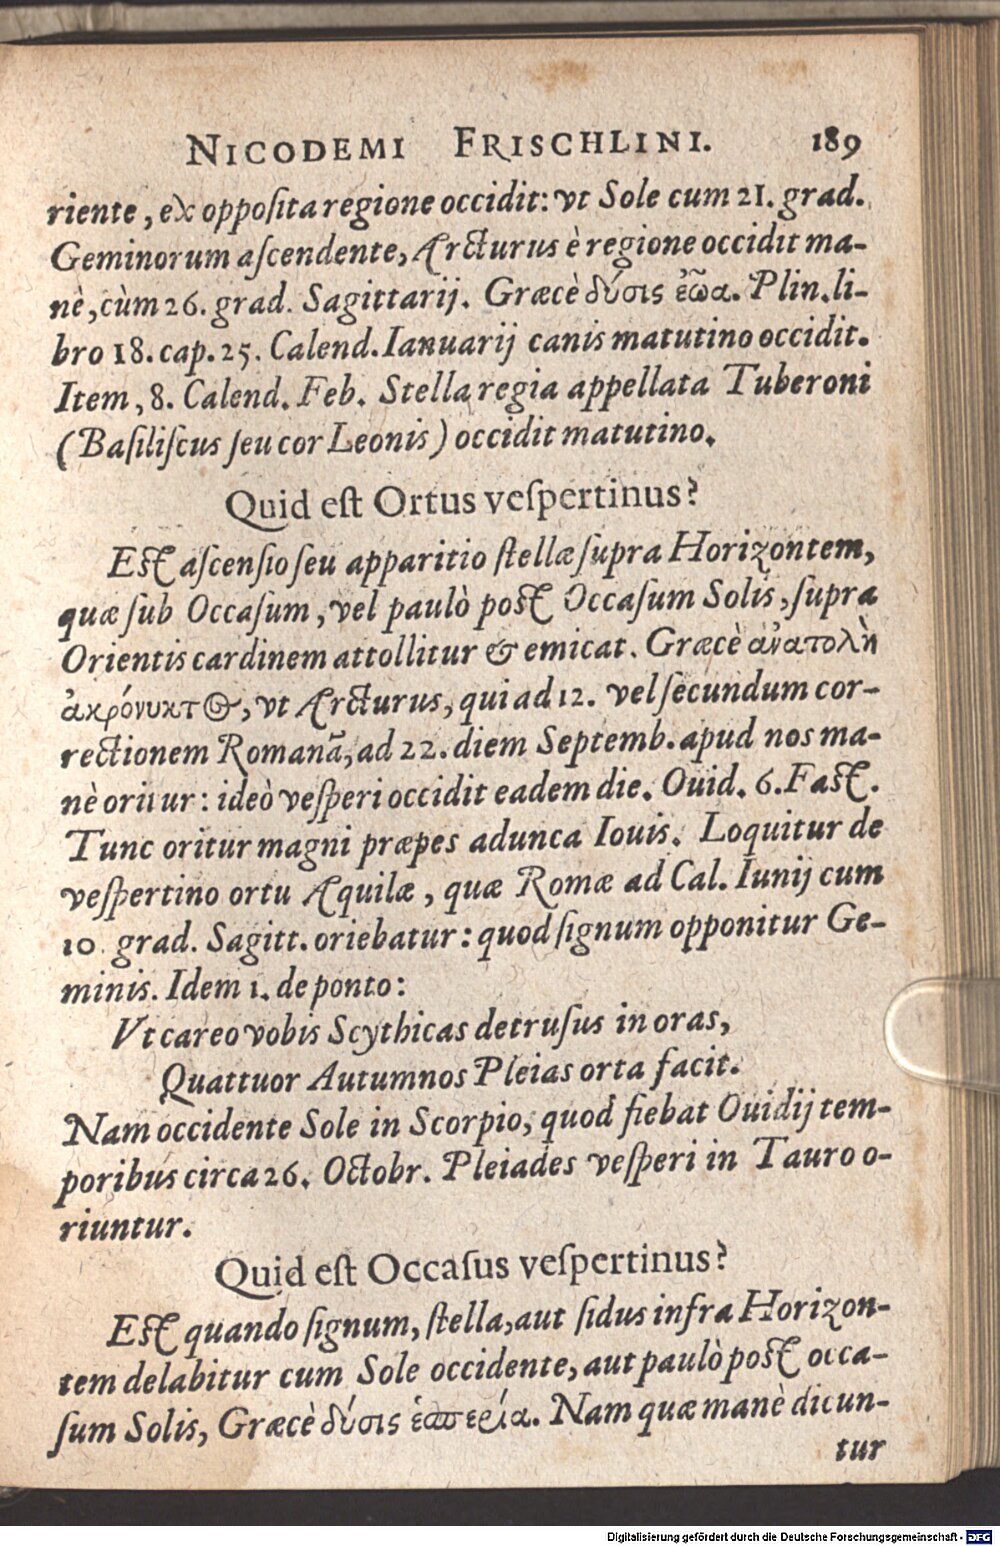 NICODEMI FRISCHLINI. 189
riente, ex oppoſita regione occidit: vt Sole cum 21. grad.
Geminorum aſcendente, Arcturus è regione occidit ma-
nè, cùm 26. grad. Sagittarij. Græcè δύσις ἑῶα. Plin. li-
bro 18. cap. 25. Calend. Ianuarij canis matutino occidit.
Item, 8. Calend. Feb. Stella regia appellata Tuberoni
(Baſiliſcus ſeu cor Leonis) occidit matutino.
Quid eſt Ortus veſpertinus?
Eſt aſcenſio ſeu apparitio ſtellæ ſupra Horizontem,
quæ ſub Occaſum, vel paulò poſt Occaſum Solis, ſupra
Orientis cardinem attollitur & emicat. Græcè ἀνατολὴ
ἀκρόνυκτ⊕, vt Arcturus, qui ad 12. vel ſecundum cor-
rectionem Romanã, ad 22. diem Septemb. apud nos ma-
nè oritur: ideò veſperi occidit eadem die. Ouid. 6. Faſt.
Tunc oritur magni præpes adunca Iouis. Loquitur de
veſpertino ortu Aquilæ, quæ Romæ ad Cal. Iunij cum
10. grad. Sagitt. oriebatur: quod ſignum opponitur Ge-
minis. Idem 1. de ponto:
Vt careo vobis Scythicas detruſus in oras,
Quattuor Autumnos Pleias orta facit.
Nam occidente Sole in Scorpio, quod fiebat Ouidij tem-
poribus circa 26. Octobr. Pleiades veſperi in Tauro o-
riuntur.
Quid eſt Occaſus veſpertinus?
Eſt quando ſignum, ſtella, aut ſidus infra Horizon-
tem delabitur cum Sole occidente, aut paulò poſt occa-
ſum Solis, Græcè δύσις ἑσπερία. Nam quæ manè dicun-
tur
Digitalisierung gefördert durch die Deutsche Forschungsgemeinschaft - DFG